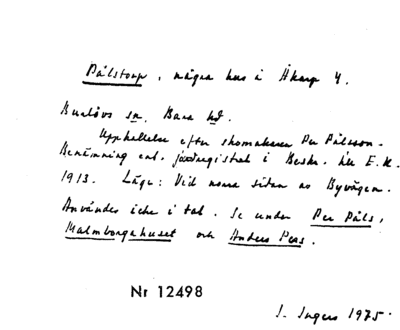 Pålstorp, några hus i Åkarp 4.
Burlövs sn. Bara hd.
Uppkallelse efter skomakaren Per Pålsson.
Benämning enl. jordregistret i Beskr. till E.K.
1913. Läge: Vid norra sidan av Byvägen.
Användes icke i tal. Se under Per Påls,
Malmborgahuset och Anders Pers.
Nr 12498
I. Ingers 1975.